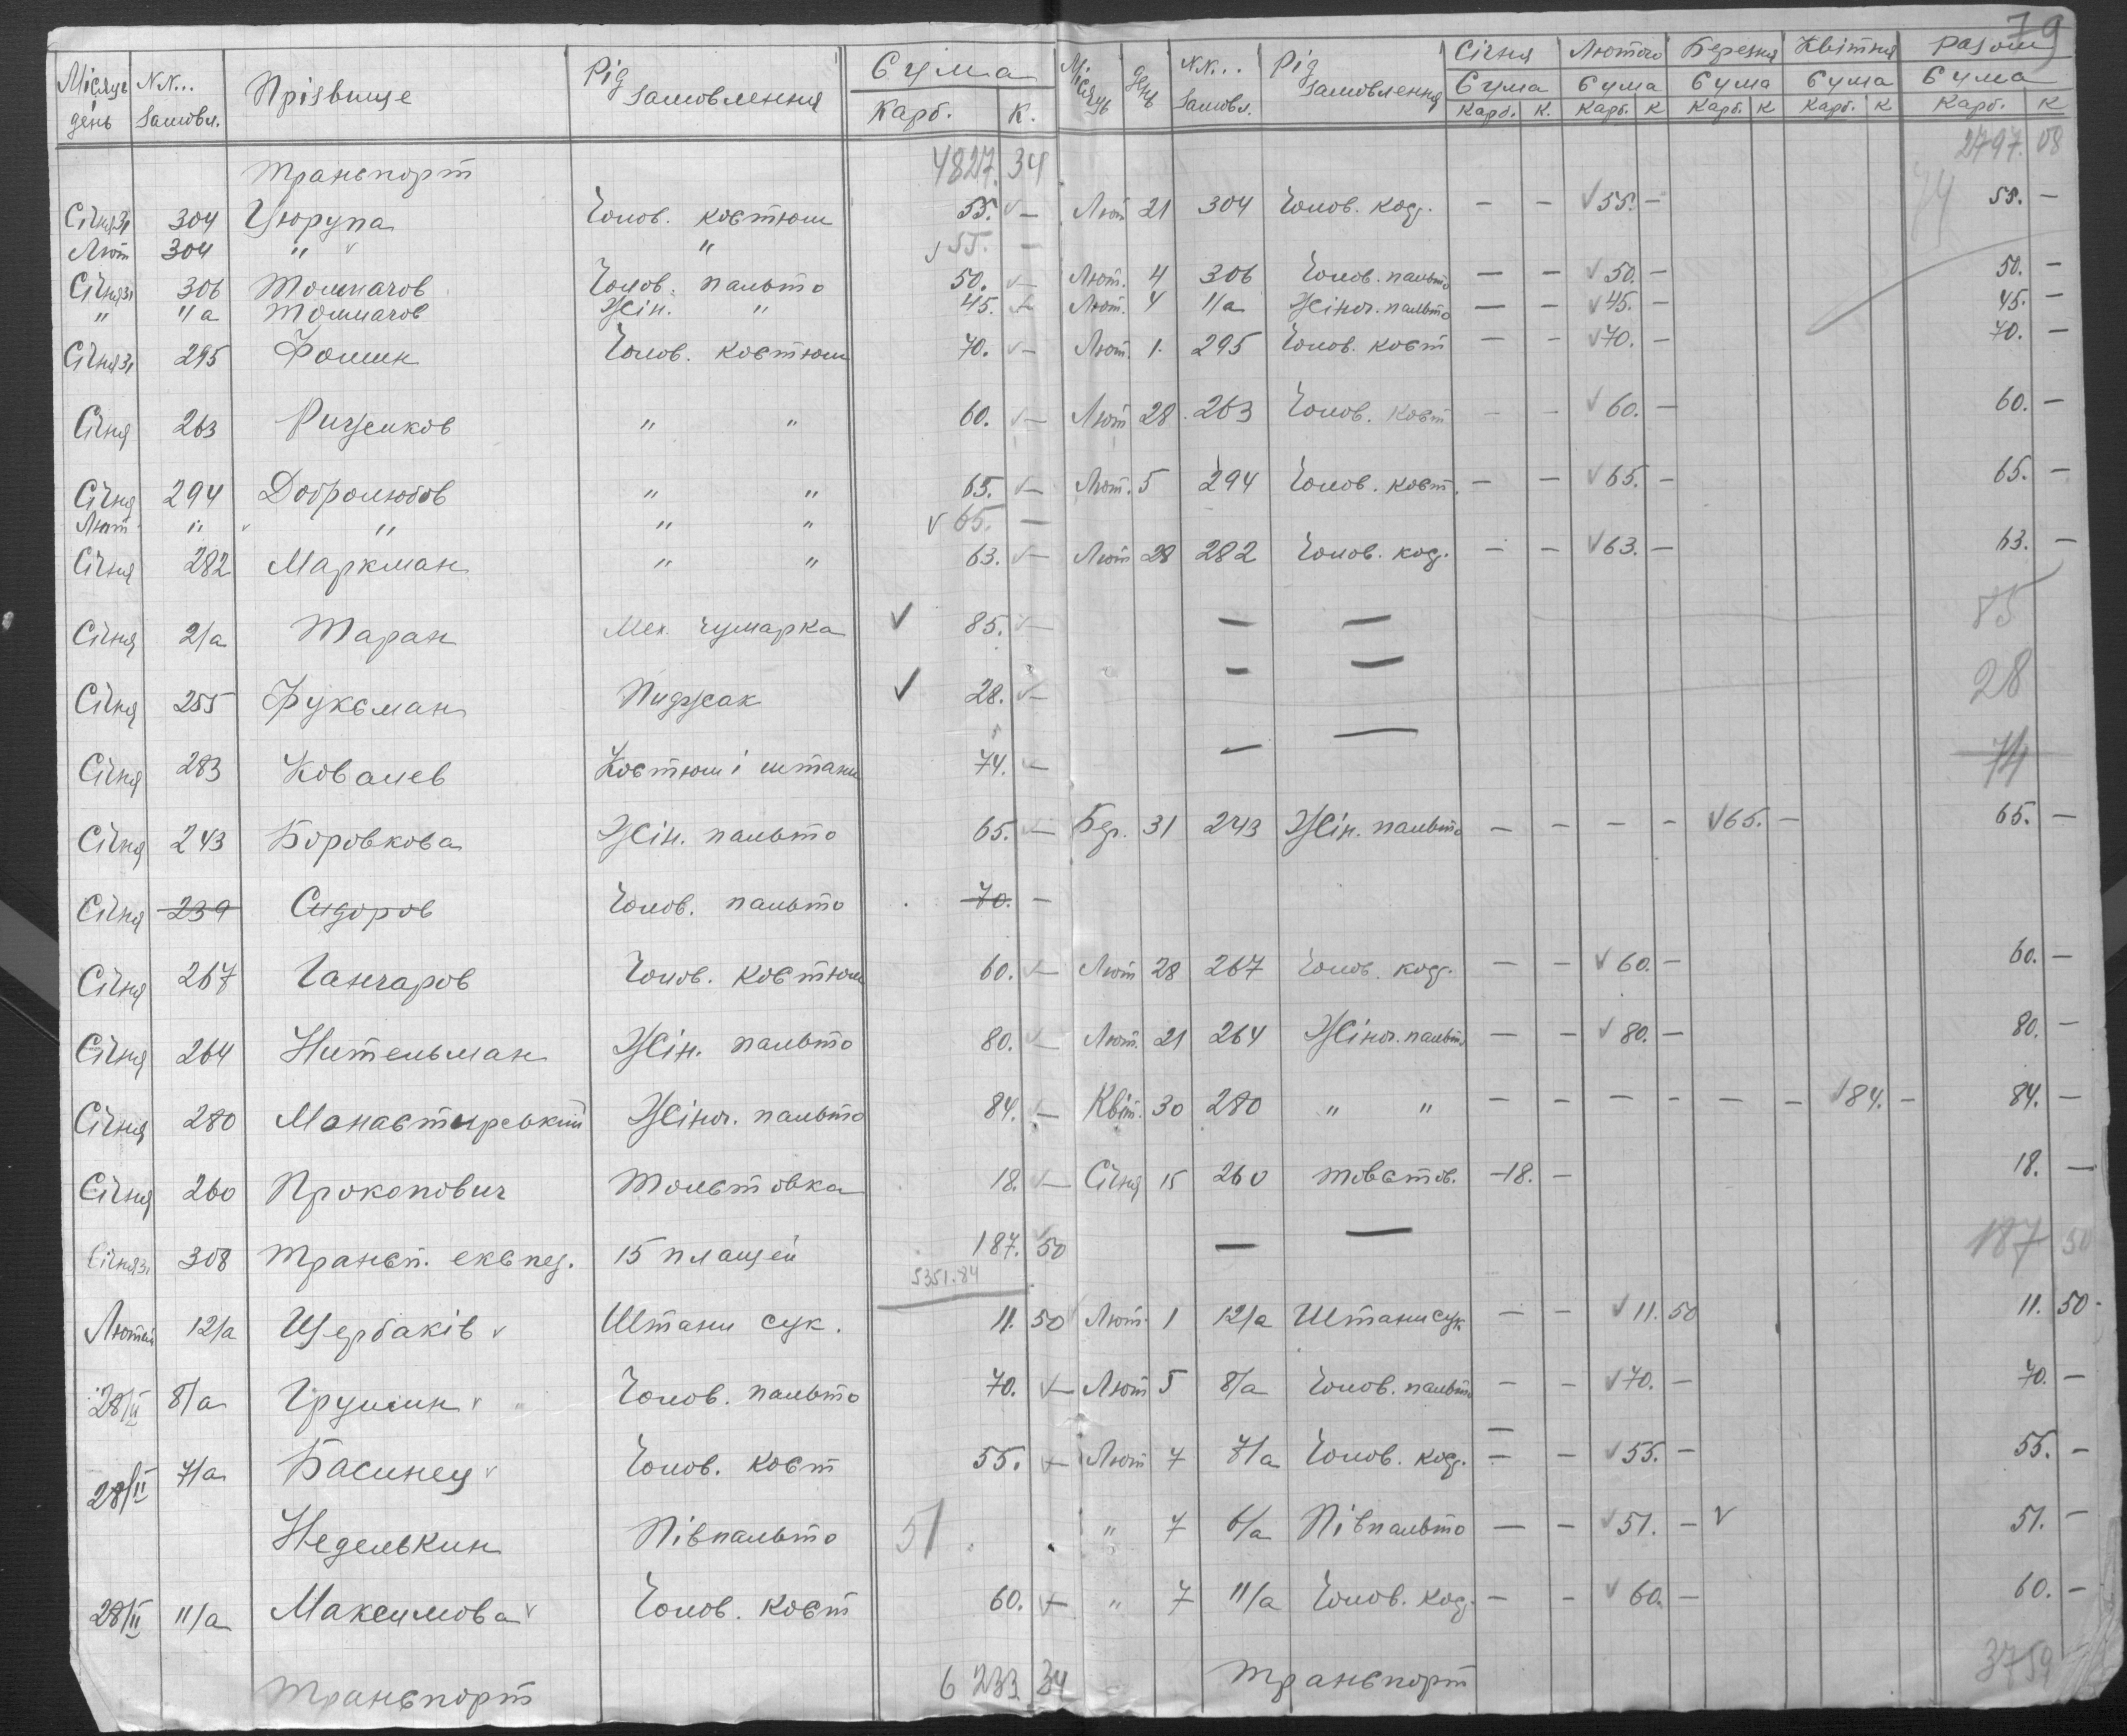 79
Місяць день | N.N... замовл. | Прізвище | Рід замовлення | Сума Карб. К. | Місяць | день | N.N... замовл. | Рід замовлення | Січня Сума Карб. К. | Лютого Сума Карб. К | Березня Сума Карб. К | Квітня Сума Карб. К | Разом Сума Карб. К
Транспорт 4827. 34 2797. 08
Січня 31 304 Цюрупа Чолов. костюм 55. v — Лют 21 304 Чолов. код. — — v 55. — 55. —
Лют 304 " v " v 55. —
Січня 31 306 Толмачов Чолов. пальто 50. v — Лют. 4 306 Чолов. пальто — — v 50. — 50. —
" 11а Толмачов Жін. " 45. v — Лют. 4 11а Жіноч. пальто — — v 45. — 45. —
Січня 31 295 Фомин Чолов. костюм 70. v — Лют. 1. 295 Чолов. кост — — v 70. — 70. —
Січня 263 " " 60. v — Лют 28 263 Чолов. кост — — v 60. — 60. —
Січня 294 Добролюбов " " 65. v — Лют. 5 294 Чолов. кост. — — v 65. — 65. —
Лют " v " " " v 65. —
Січня 282 Маркман " " 63. v — Лют 28 282 Чолов. код. — — v 63. — 63. —
Січня 2/а Таран Мех. чумарка v 85. v — — — 85
Січня 255 Фуксман Пиджак v 28. v — — — 28
Січня 283 Ковалев Костюм і штани 74. v — — — 74
Січня 243 Боровкова Жін. пальто 65. v — Бер. 31 243 Жін. пальто — — — — v 65. — 65. —
Січня 239 Сидоров Чолов. пальто 70. —
Січня 267 Ганчаров Чолов. костюм 60. v — Лют 28 267 Чолов. код. — — v 60. — 60. —
Січня 264 Нительман Жін. пальто 80. v — Лют. 21 264 Жіноч. пальто — — v 80. — 80. —
Січня 280 Манастирський Жіноч. пальто 84. v — Квіт. 30 280 " " — — — — — — v 84. — 84. —
Січня 260 Прокопович Толстовка 18. v — Січня 15 260 товстов. —18. — 18. —
Січня 31 308 Трансп. експед. 15 плащей 187. v 50 — — 187 50
5351.84
Лютый 12/а Щербаків v Штани сук. 11. 50 Лют. 1 12/а Штани сук — — v 11. 50 11. 50
28/II 8/а Грушин v Чолов. пальто 70. v — Лют 5 8/а Чолов. пальто — — v 70. — 70. —
28/II 7/а Басинец v Чолов. кост 55. v — Лют 7 7/а Чолов. код. — — v 55. — 55. —
Неделькин Півпальто 51 " 7 6/а Півпальто — — v 51. — v 51. —
28/II 11/а Максимова v Чолов. кост 60. v — " 7 11/а Чолов. код. — — v 60. — 60. —
Транспорт 6 233 34 Транспорт 3759